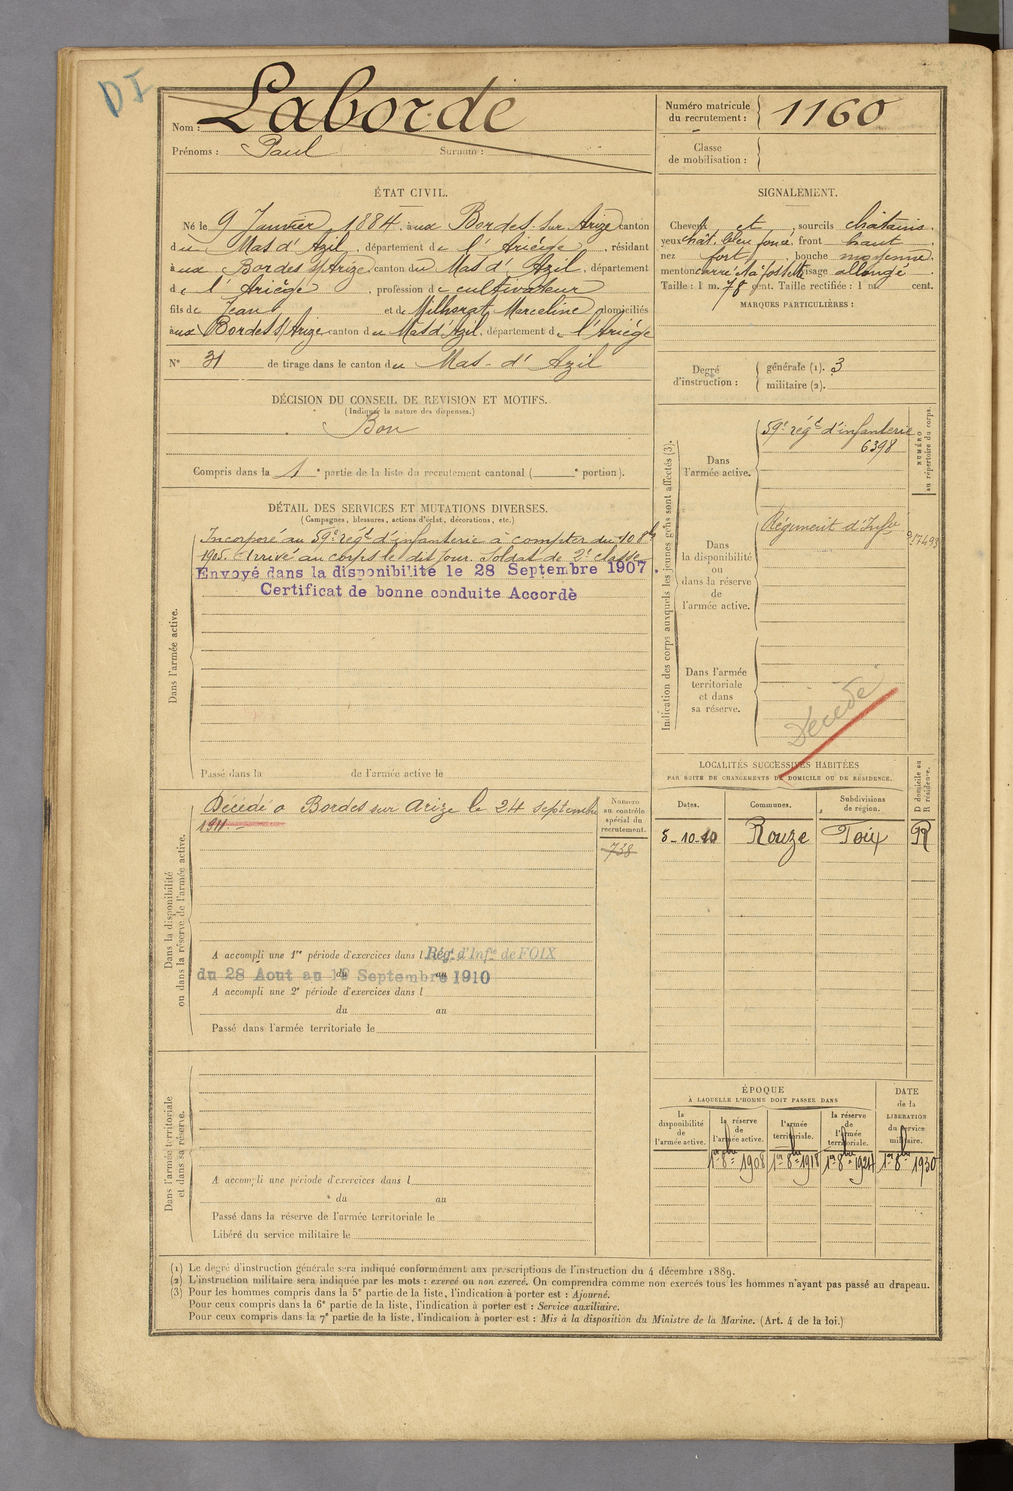 DI
Nom : Laborde
Prénoms : Paul Surnom :
Numéro matricule
du recrutement : 1160
Classe
de mobilisation :
ÉTAT CIVIL.
Né le 9 Janvier 1884, à aux Bordes-sur-Arize canton
du Mas d'Azil, département de l'Ariège, résidant
à aux Bordes s/Arize canton du Mas d'Azil, département
de l'Ariège, profession de cultivateur
fils de Jean et de Milhorat Marceline domiciliés
à aux Bordes s/Arize canton du Mas d'Azil, département de l'Ariège
N° 31 de tirage dans le canton du Mas-d'Azil
DÉCISION DU CONSEIL DE REVISION ET MOTIFS.
(Indiquer la nature des dispenses.)
Bon
Compris dans la 1e partie de la liste du recrutement cantonal ( e portion).
SIGNALEMENT.
Cheveux et , sourcils châtains,
yeux chât. bleu foncé, front haut,
nez fort, bouche moyenne,
menton carré à fossette visage allongé.
Taille : 1 m. 78 cent. Taille rectifiée : 1 m. cent.
MARQUES PARTICULIÈRES :
Degré
d'instruction :
générale (1). 3
militaire (2).
DÉTAIL DES SERVICES ET MUTATIONS DIVERSES.
(Campagnes, blessures, actions d'éclat, décorations, etc.)
Dans l'armée active.
Incorporé au 59e régt d'infanterie à compter du 10 8bre
1905. Arrivé au corps le dit jour. Soldat de 2e classe
Envoyé dans la disponibilité le 28 Septembre 1907.
Certificat de bonne conduite Accordé
Passé dans la de l'armée active le
Indication des corps auxquels les jeunes gens sont affectés (3).
NUMÉRO
au répertoire du corps.
Dans
l'armée active.
59e régt d'infanterie
6398
Dans
la disponibilité
ou
dans la réserve
de
l'armée active.
Régiment d'Infie
Dans l'armée
territoriale
et dans
sa réserve.
Décédé
LOCALITÉS SUCCESSIVES HABITÉES
PAR SUITE DE CHANGEMENTS DE DOMICILE OU DE RÉSIDENCE.
D domicile ou
R résidence.
Dates. Communes. Subdivisions
de région.
8-10-10 Rouze Foix R
Dans la disponibilité
ou dans la réserve de l'armée active.
Décédé à Bordes sur Arize le 24 septembre
1911.
Numéro
au contrôle
spécial du
recrutement.
738
A accompli une 1re période d'exercices dans l Régt d'Infie de FOIX
du 28 Aout au 19 Septembre 1910
A accompli une 2e période d'exercices dans l
du au
Passé dans l'armée territoriale le
Dans l'armée territoriale
et dans sa réserve.
A accompli une période d'exercices dans l
du au
Passé dans la réserve de l'armée territoriale le
Libéré du service militaire le
ÉPOQUE
À LAQUELLE L'HOMME DOIT PASSER DANS
DATE
de la
LIBÉRATION
du service
militaire.
la
disponibilité
de
l'armée active.
la réserve
de
l'armée active.
l'armée
territoriale.
la réserve
de
l'armée
territoriale.
1er 8bre 1908 1er 8bre 1918 1er 8bre 1924 1er 8bre 1930
(1) Le degré d'instruction générale sera indiqué conformément aux prescriptions de l'instruction du 4 décembre 1889.
(2) L'instruction militaire sera indiquée par les mots : exercé ou non exercé. On comprendra comme non exercés tous les hommes n'ayant pas passé au drapeau.
(3) Pour les hommes compris dans la 5e partie de la liste, l'indication à porter est : Ajourné.
Pour ceux compris dans la 6e partie de la liste, l'indication à porter est : Service auxiliaire.
Pour ceux compris dans la 7e partie de la liste, l'indication à porter est : Mis à la disposition du Ministre de la Marine. (Art. 4 de la loi.)